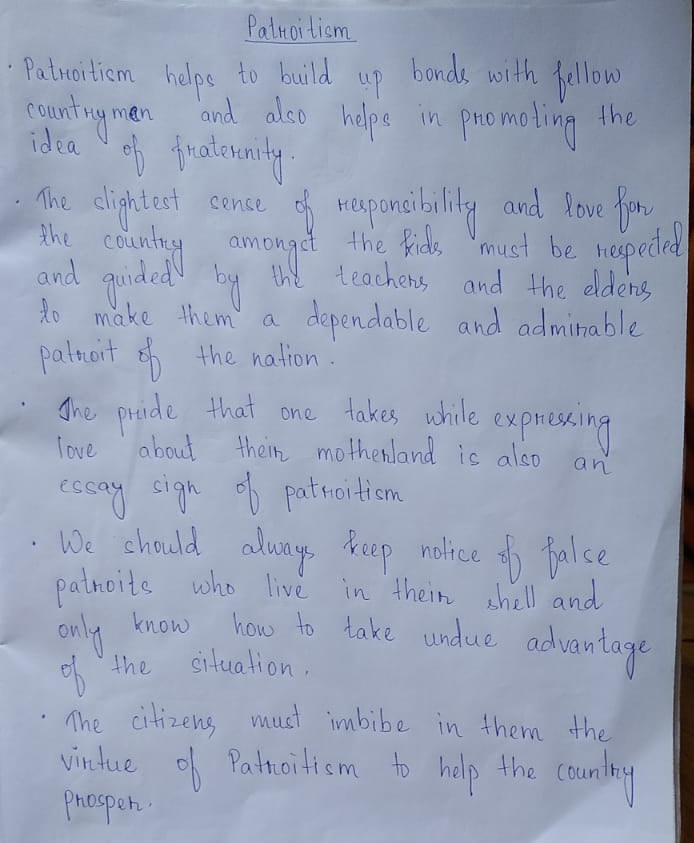 Patroitism
· Patroitism helps to build up bonds with fellow
countrymen and also helps in promoting the
idea of fraternity.
· The slightest sense of responsibility and love for
the country amongst the kids must be respected
and guided by the teachers and the elders
to make them a dependable and admirable
patroit of the nation.
· The pride that one takes while expressing
love about their motherland is also an
essay sign of patroitism
· We should always keep notice of false
patroits who live in their shell and
only know how to take undue advantage
of the situation.
· The citizens must imbibe in them the
virtue of Patroitism to help the country
prosper.